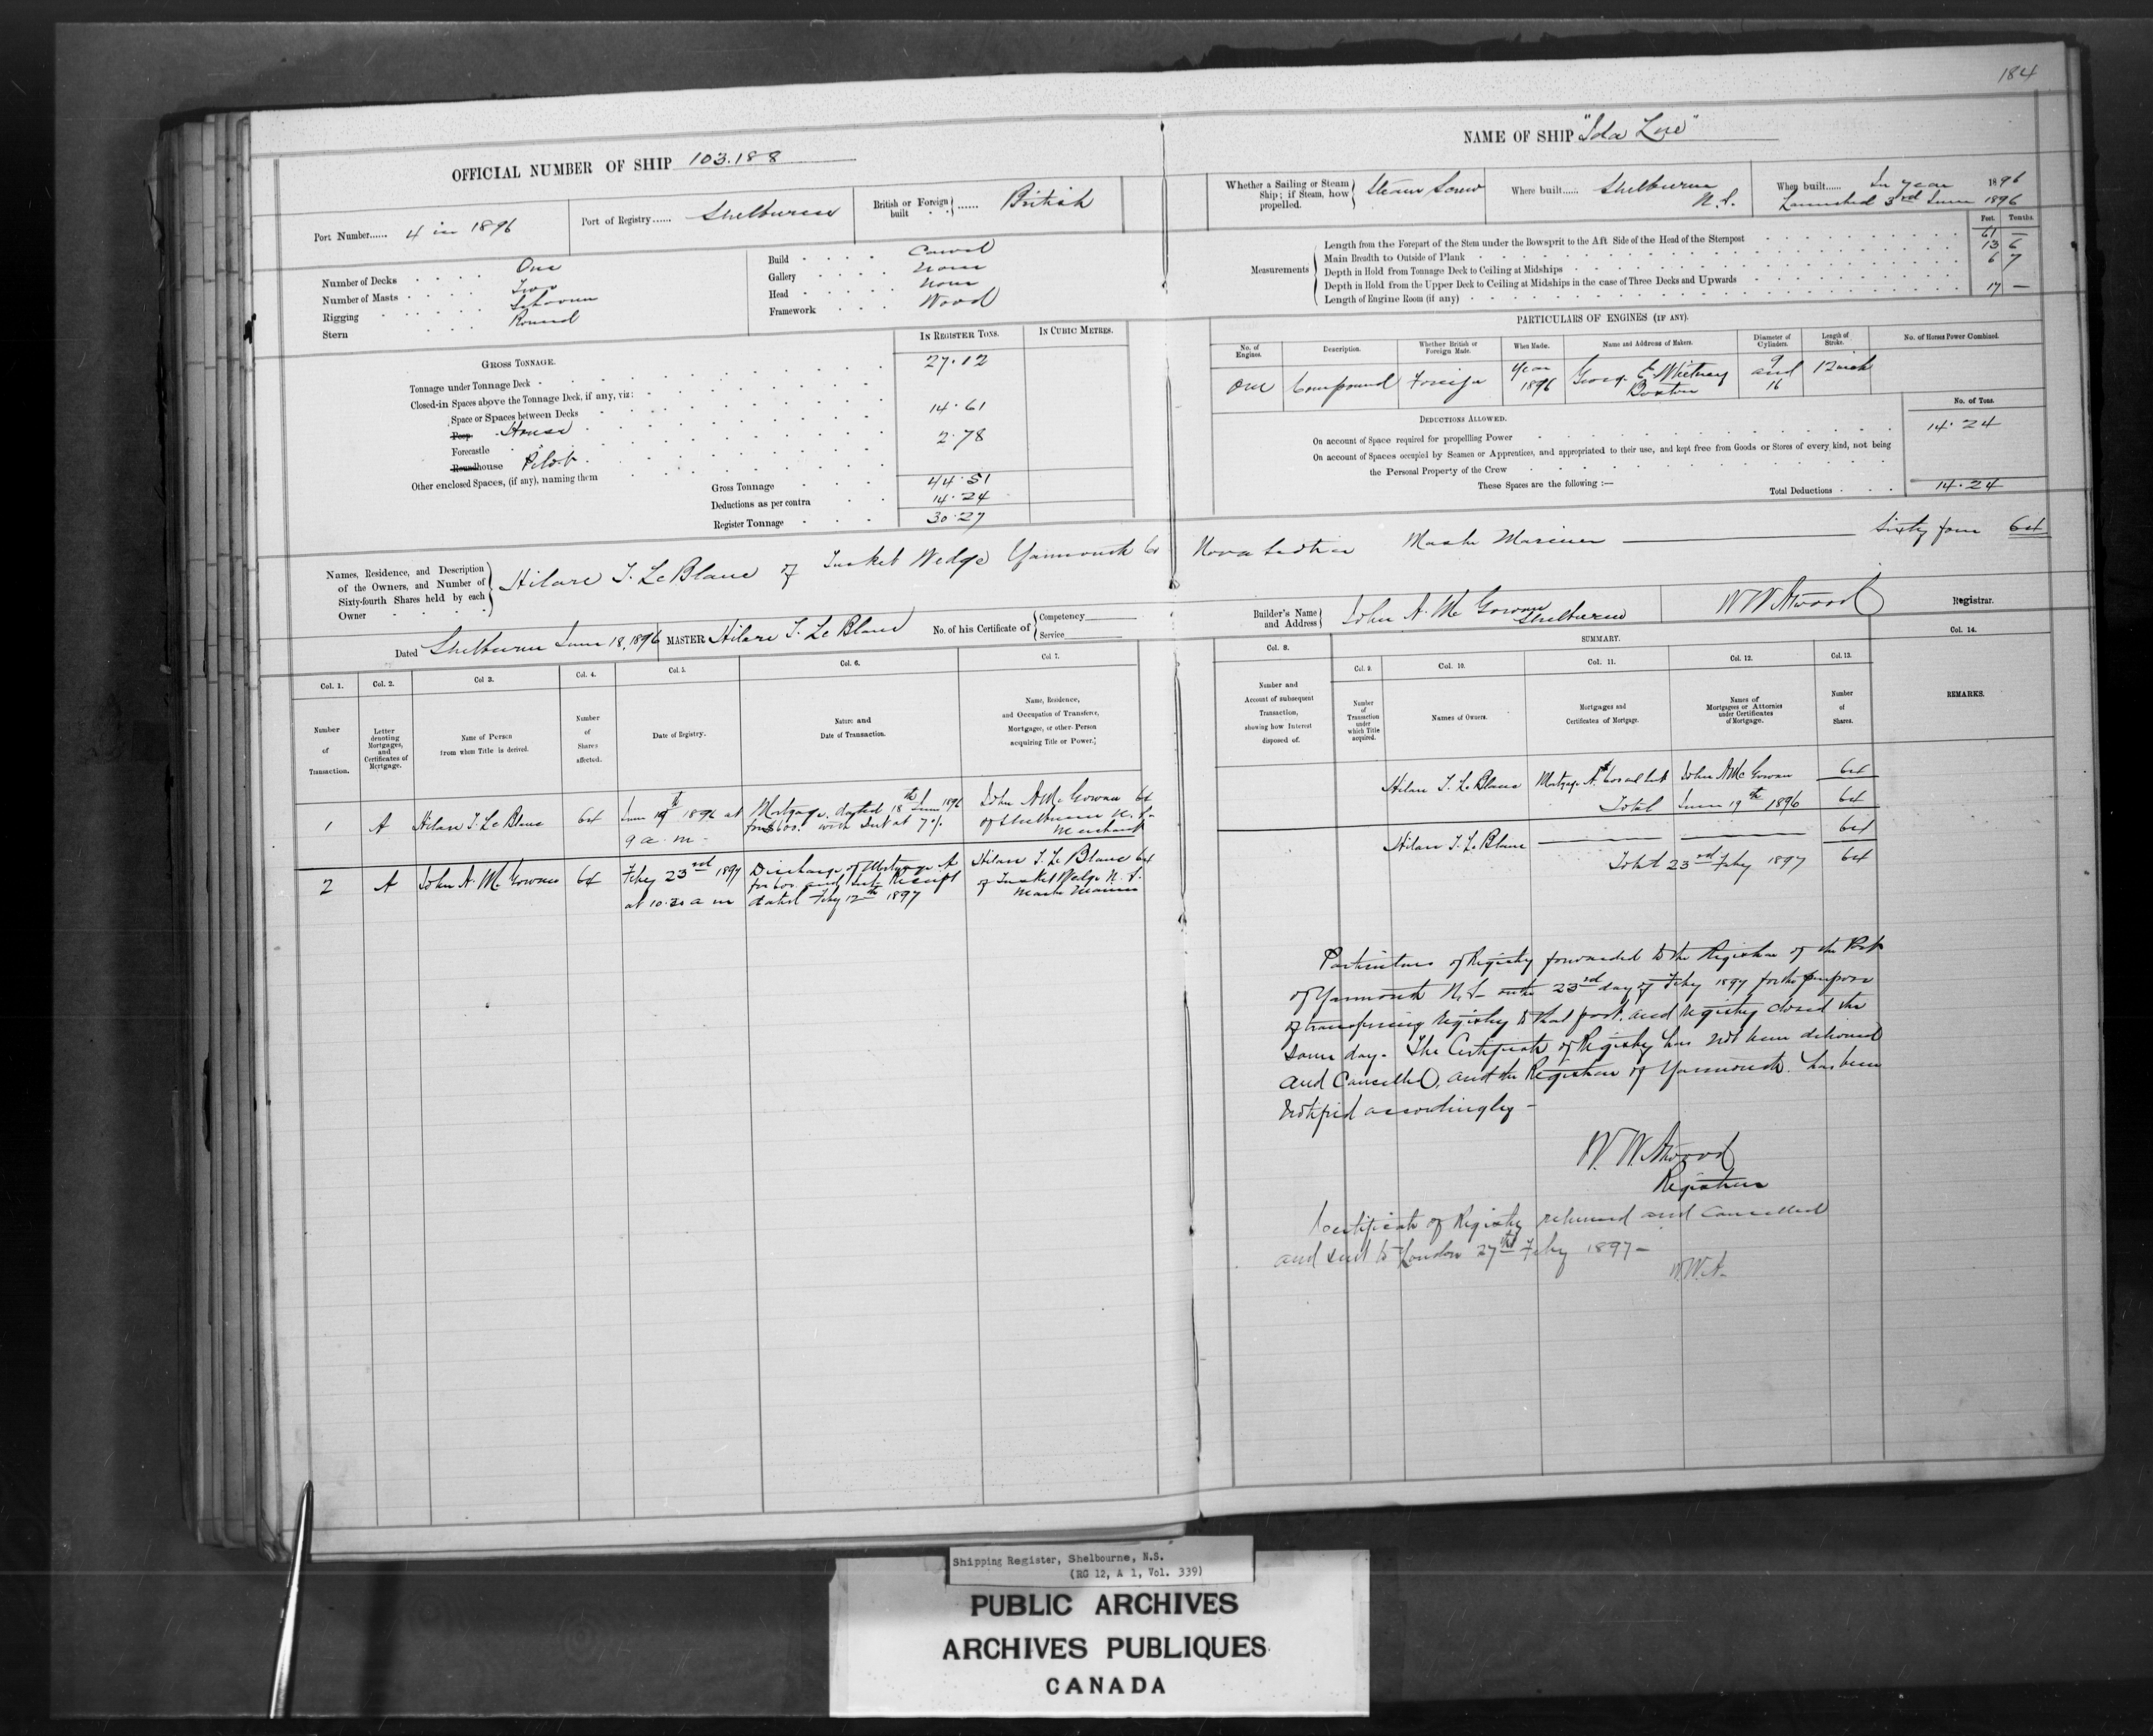 184
OFFICIAL NUMBER OF SHIP 103.188
NAME OF SHIP "Ida Lue"
Port Number...... 4 in 1896
Port of Registry...... Shelburne
British or Foreign built ...... British
Whether a Sailing or Steam Ship; if Steam, how propelled. Steam Screw
Where built..... Shelburne N.S.
When built...... In year 1896
Launched 3rd June 1896
Number of Decks One
Number of Masts Two
Rigging Schooner
Stern Round
Build Carvel
Gallery None
Head None
Framework Wood
Measurements
Feet. Tenths.
Length from the Forepart of the Stem under the Bowsprit to the Aft Side of the Head of the Sternpost 61 —
Main Breadth to Outside of Plank 13 6
Depth in Hold from Tonnage Deck to Ceiling at Midships 6 7
Depth in Hold from the Upper Deck to Ceiling at Midships in the case of Three Decks and Upwards
Length of Engine Room (if any) 17 —
GROSS TONNAGE.
IN REGISTER TONS.
IN CUBIC METRES.
Tonnage under Tonnage Deck 27.12
Closed-in Spaces above the Tonnage Deck, if any, viz:
Space or Spaces between Decks
Poop House 14.61
Forecastle
Roundhouse Pilot 2.78
Other enclosed Spaces, (if any), naming them
Gross Tonnage 44.51
Deductions as per contra 14.24
Register Tonnage 30.27
PARTICULARS OF ENGINES (IF ANY).
No. of Engines.
Description.
Whether British or Foreign Made.
When Made.
Name and Address of Makers.
Diameter of Cylinders.
Length of Stroke.
No. of Horses Power Combined.
One Compound Foreign Year 1896 George E. Whitney Boston 9 and 16 12 inch
DEDUCTIONS ALLOWED.
No. of Tons.
On account of Space required for propellling Power 14.24
On account of Spaces occupied by Seamen or Apprentices, and appropriated to their use, and kept free from Goods or Stores of every kind, not being
the Personal Property of the Crew
These Spaces are the following :—
Total Deductions 14.24
Names, Residence, and Description of the Owners, and Number of Sixty-fourth Shares held by each Owner
Hilare T. Le Blanc of Tusket Wedge Yarmouth Co Nova Scotia Master Mariner — Sixty four 64
Dated Shelburne June 18, 1896 MASTER Hilare T. Le Blanc No. of his Certificate of Competency Service
Builder's Name and Address John A. McGowan Shelburne
W W Atwood Registrar.
Col. 1.
Col. 2.
Col 3.
Col. 4.
Col. 5.
Col. 6.
Col 7.
Col. 8.
SUMMARY.
Col. 9.
Col. 10.
Col. 11.
Col. 12.
Col. 13.
Col. 14.
Number of Transaction.
Letter denoting Mortgages, and Certificates of Mortgage.
Name of Person from whom Title is derived.
Number of Shares affected.
Date of Registry.
Nature and Date of Transaction.
Name, Residence, and Occupation of Transferee, Mortgagee, or other Person acquiring Title or Power.
Number and Account of subsequent Transaction, showing how Interest disposed of.
Number of Transaction under which Title acquired.
Names of Owners.
Mortgages and Certificates of Mortgage.
Names of Mortgagees or Attornies under Certificates of Mortgage.
Number of Shares.
REMARKS.
1 A Hilare T. Le Blanc 64 June 19th 1896 at 9 a.m. Mortgage dated 18th June 1896 for $600. with Int at 7% John A McGowan 64 of Shelburne N.S. Merchant
2 A John A. McGowan 64 Feby 23rd 1897 at 10.20 a m Discharge of Mortgage A for 600 and Int. Receipt dated Feby 12th 1897 Hilare T. Le Blanc 64 of Tusket Wedge N.S. Master Mariner
Hilare T. Le Blanc Mortgage A $600 and Int John A McGowan 64
Total June 19th 1896 64
Hilare T. Le Blanc — — 64
Total 23rd Feby 1897 64
Particulars of Registry forwarded to the Registrar of the Port
of Yarmouth N.S. on the 23rd day of Feby 1897 for the purpose
of transferring registry to that port, and registry closed the
same day. The Certificate of Registry has not been delivered
and Cancelled, and the Registrar of Yarmouth has been
notified accordingly —
W. W. Atwood
Registrar
Certificate of Registry returned and cancelled
and sent to London 27th Feby 1897 —
W.W.A.
Shipping Register, Shelbourne, N.S.
(RG 12, A 1, Vol. 339)
PUBLIC ARCHIVES
ARCHIVES PUBLIQUES
CANADA